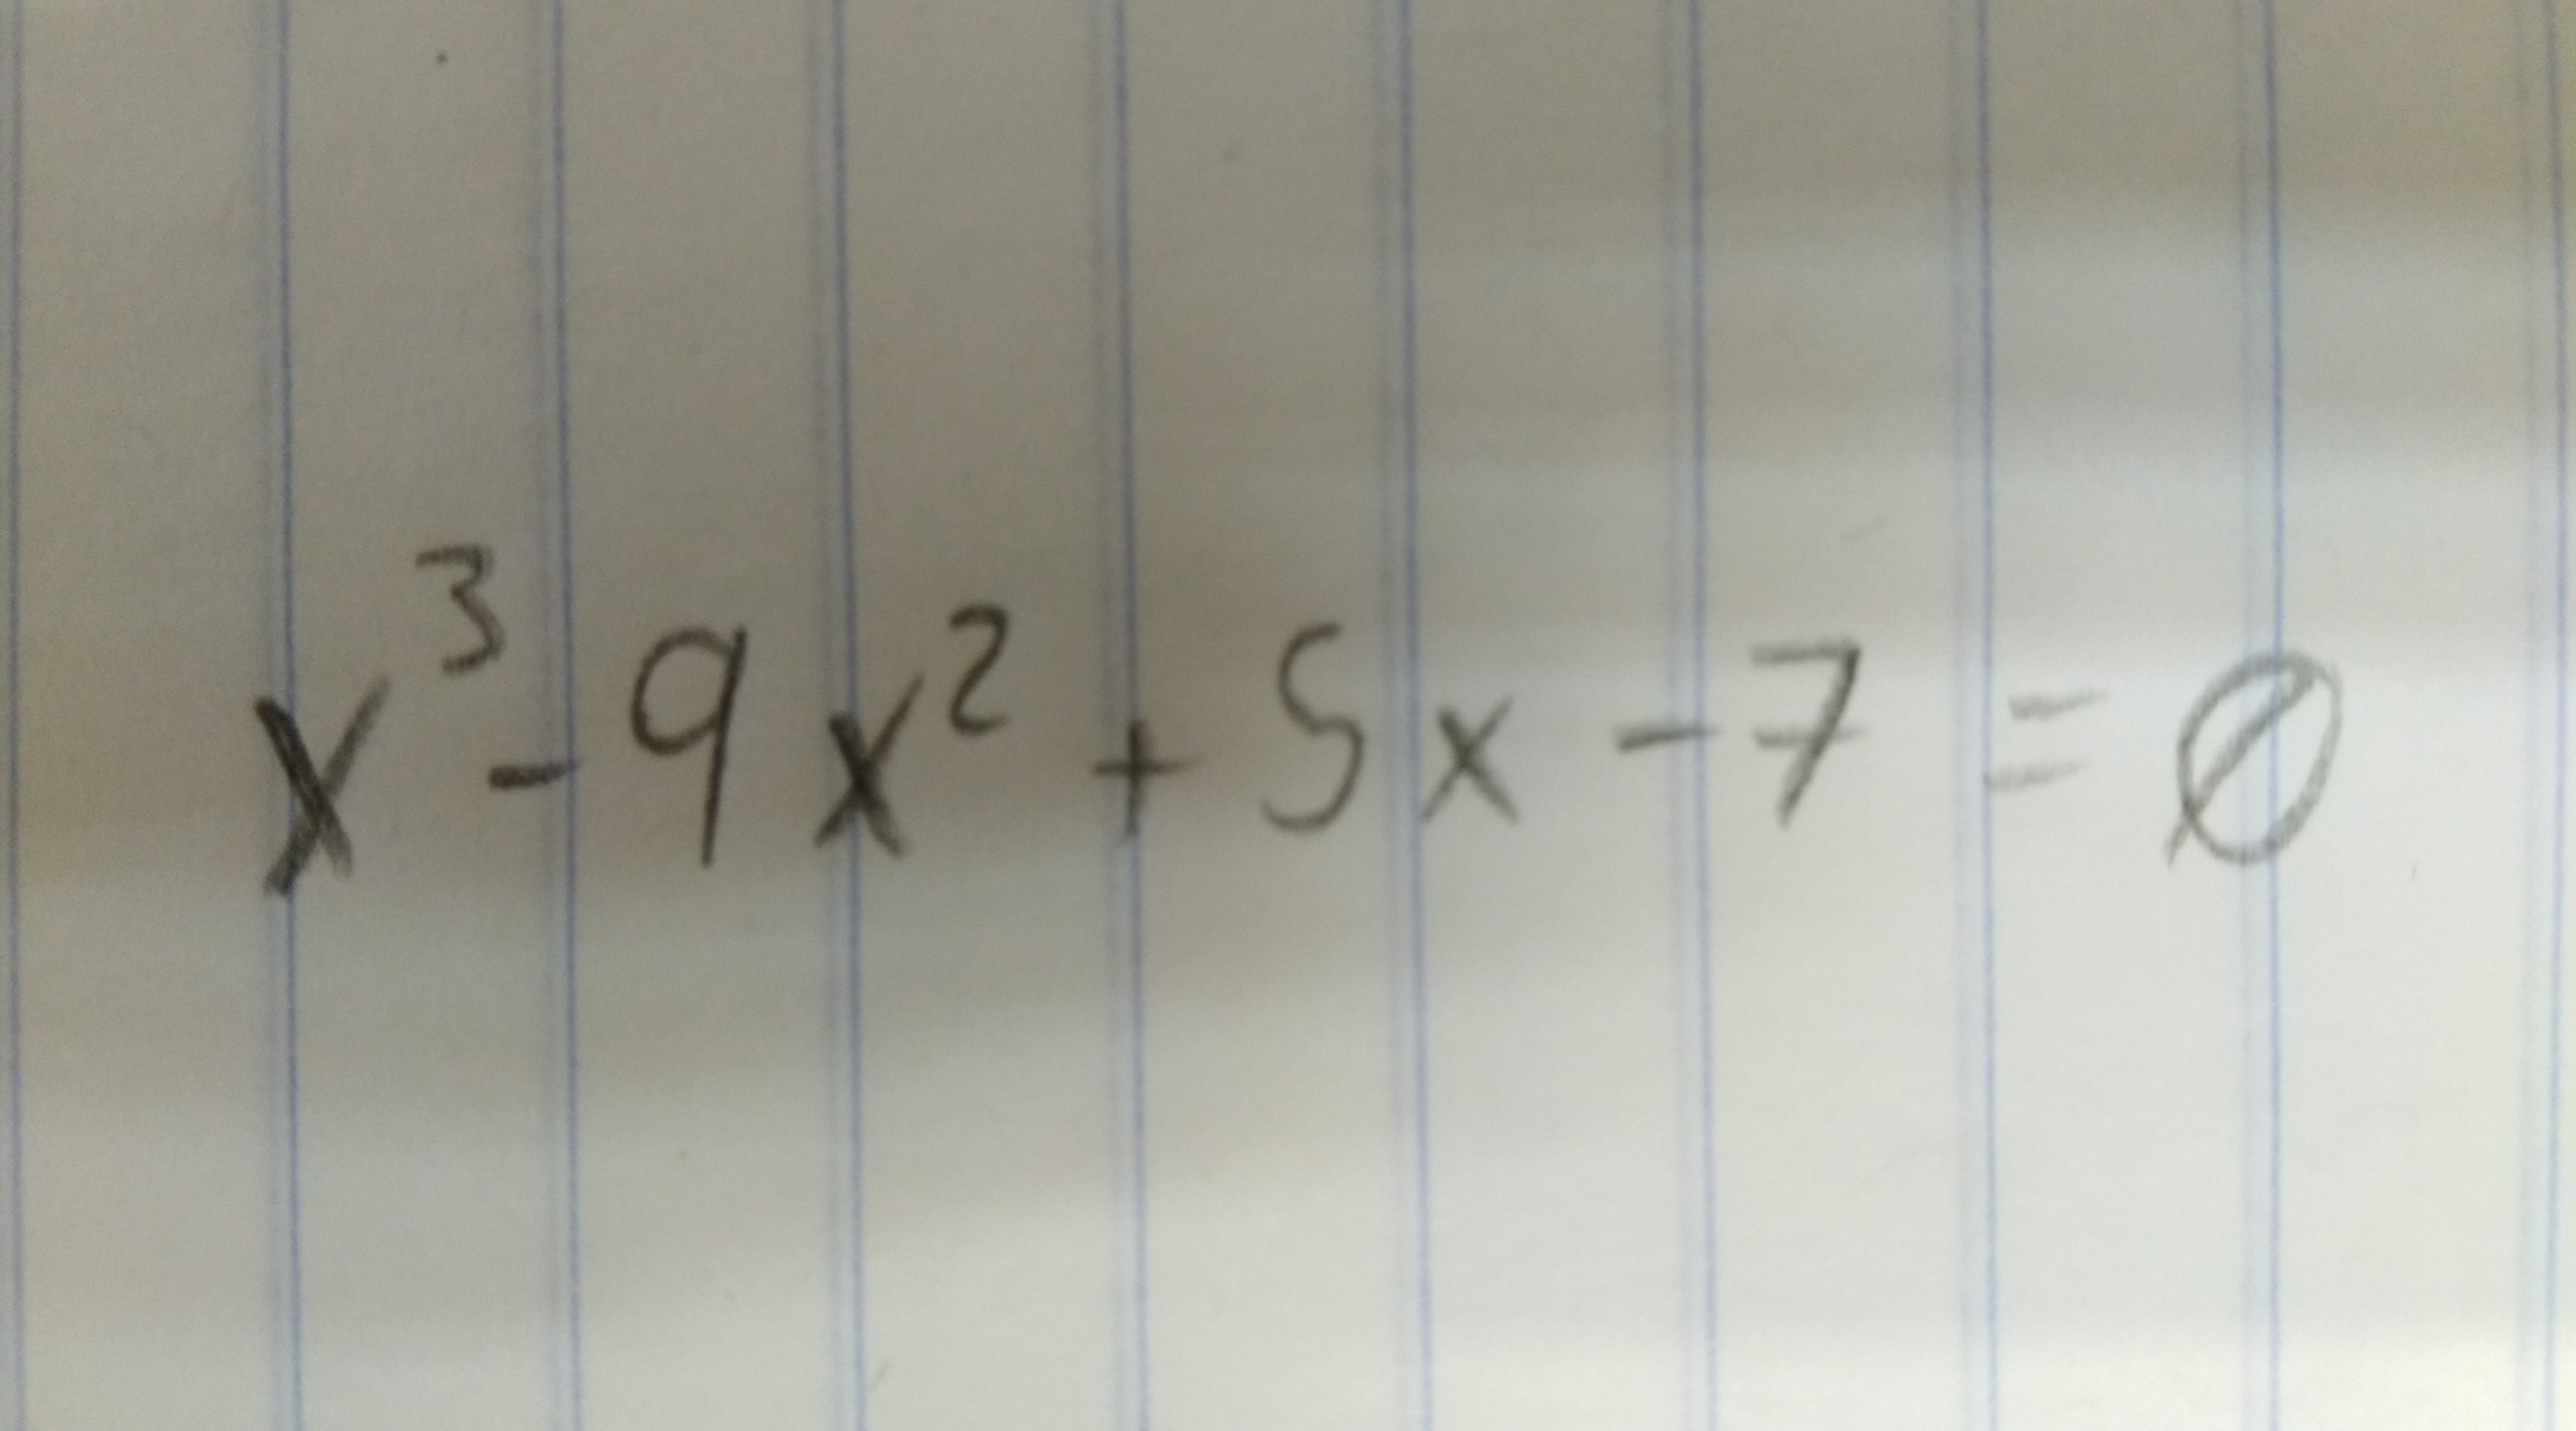 x³ - 9x² + 5x - 7 = 0